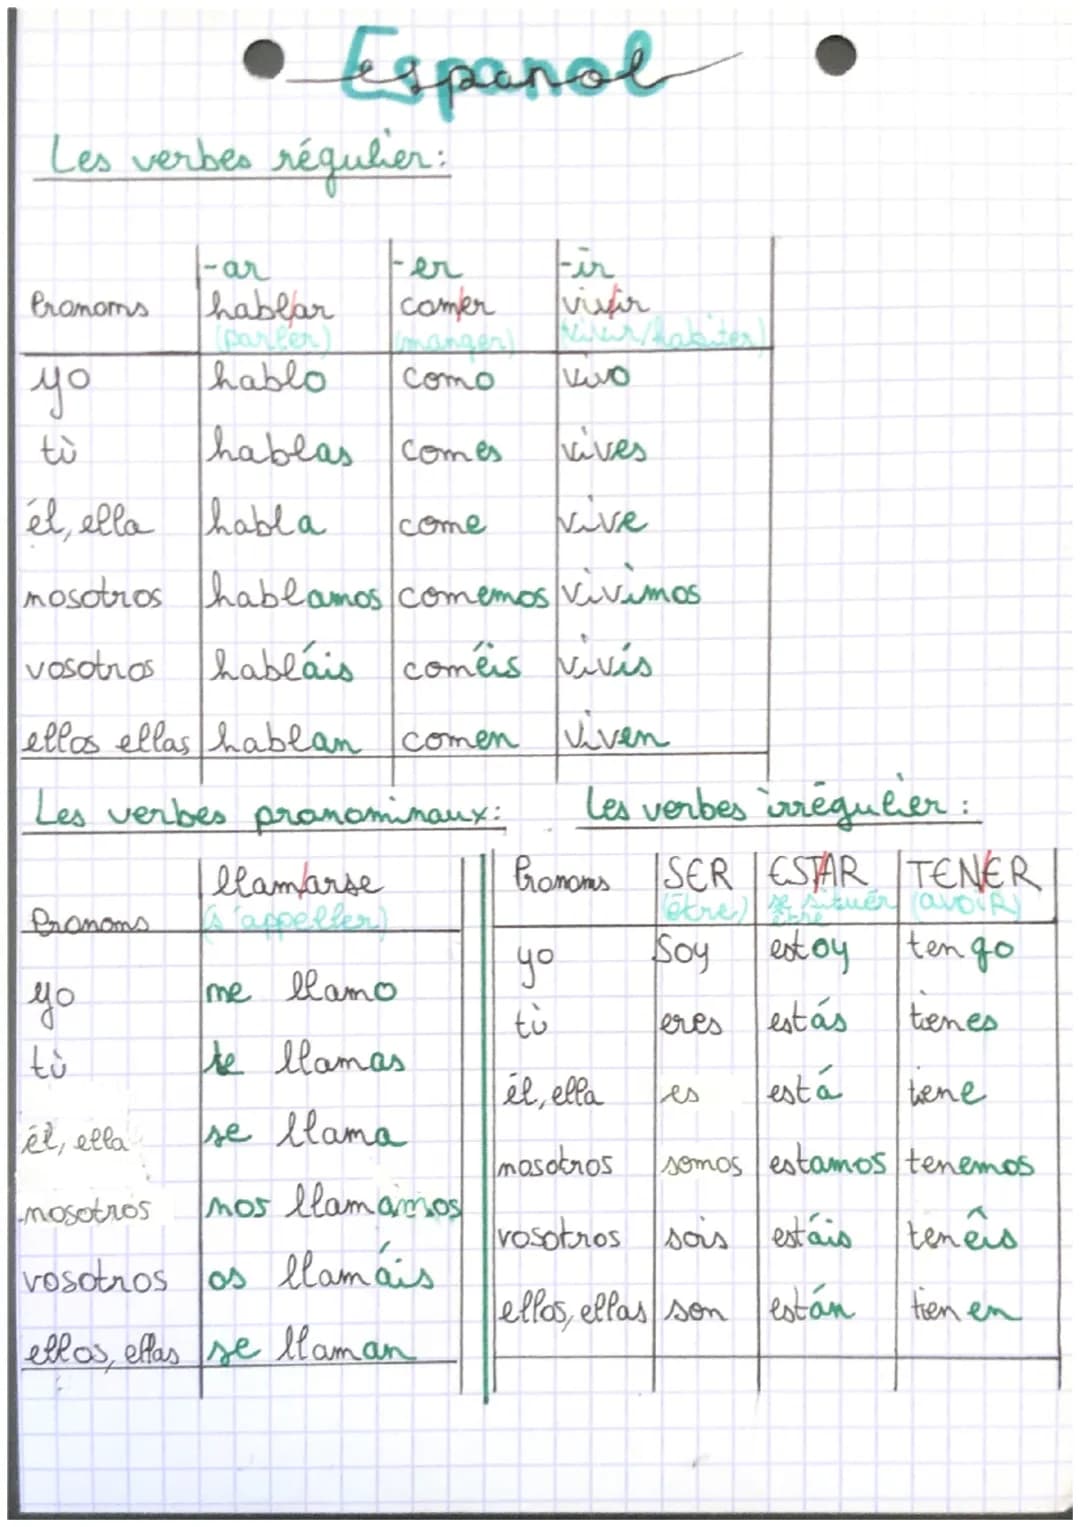 Espanol
Les verbes régulier:
-ar -er -ir
Pronoms hablar comer vivir
(parler) (manger) (vivir/habiter)
yo hablo como vivo
tù hablas comes vives
él, ella habla come vive
nosotros hablamos comemos vivimos
vosotros habláis coméis vivís
ellos ellas hablan comen viven
Les verbes pronominaux:
llamarse
Pronoms (s'appeller)
yo me llamo
tù te llamas
él, ella se llama
nosotros nos llamamos
vosotros os llamáis
ellos, ellas se llaman
Les verbes irrégulier:
Pronoms SER ESTAR TENER
(être) se situer (avoiR)
être
yo Soy estoy tengo
tù eres estás tienes
él, ella es está tiene
nosotros somos estamos tenemos
vosotros sois estáis tenêis
ellos, ellas son están tienen